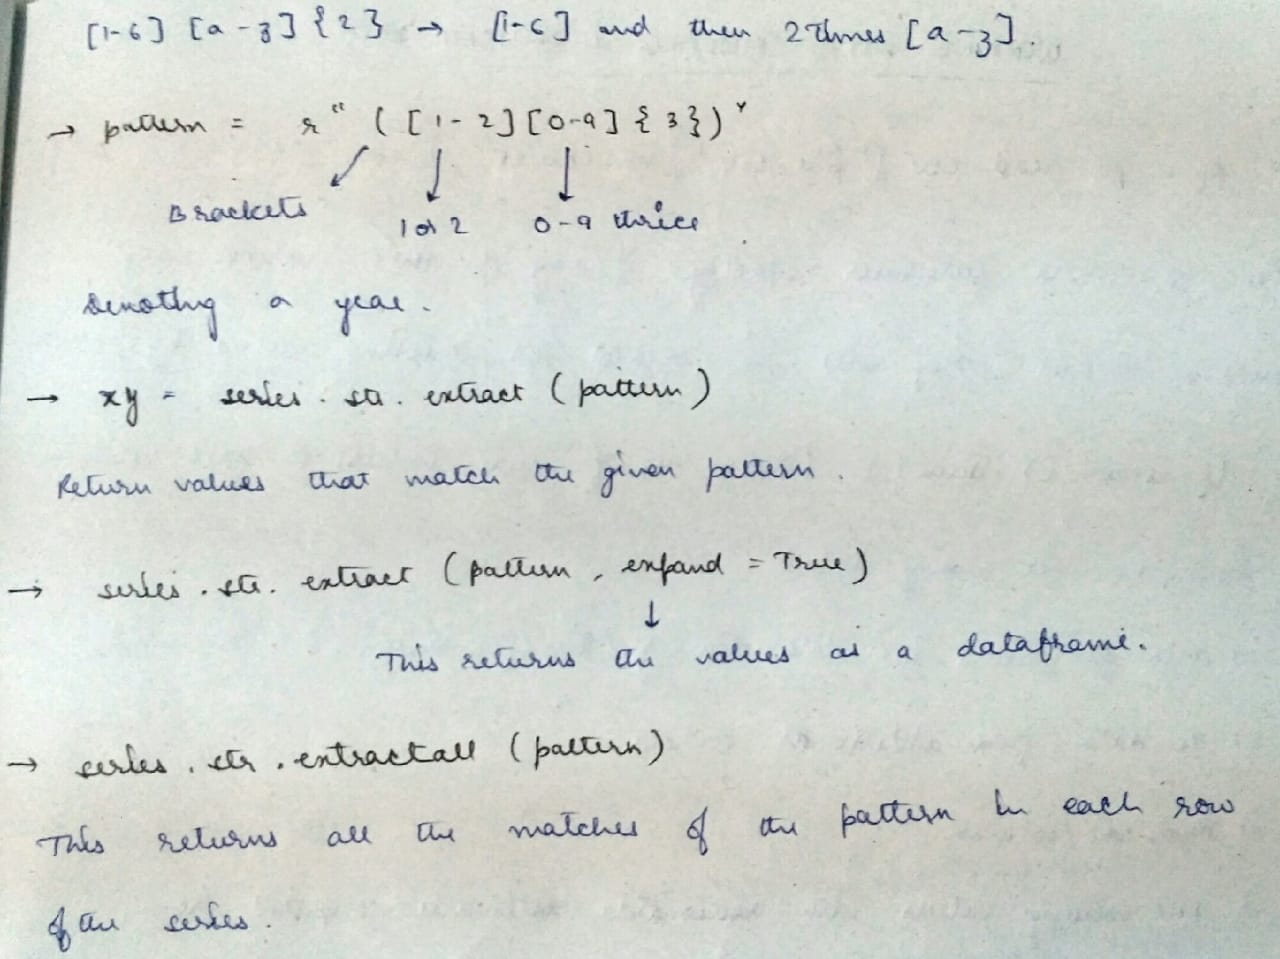 [1-6] [a-z] {2} → [1-6] and then 2 times [a-z].
→ pattern = r" ( [1-2] [0-9] {3})"
Brackets 1 or 2 0-9 thrice
Denoting a year.
→ xy = series. str. extract (pattern)
Return values that match the given pattern.
→ series. str. extract (pattern, expand = True)
This returns the values as a dataframe.
→ series. str. extractall (pattern)
This returns all the matches of the pattern in each row
of the series.